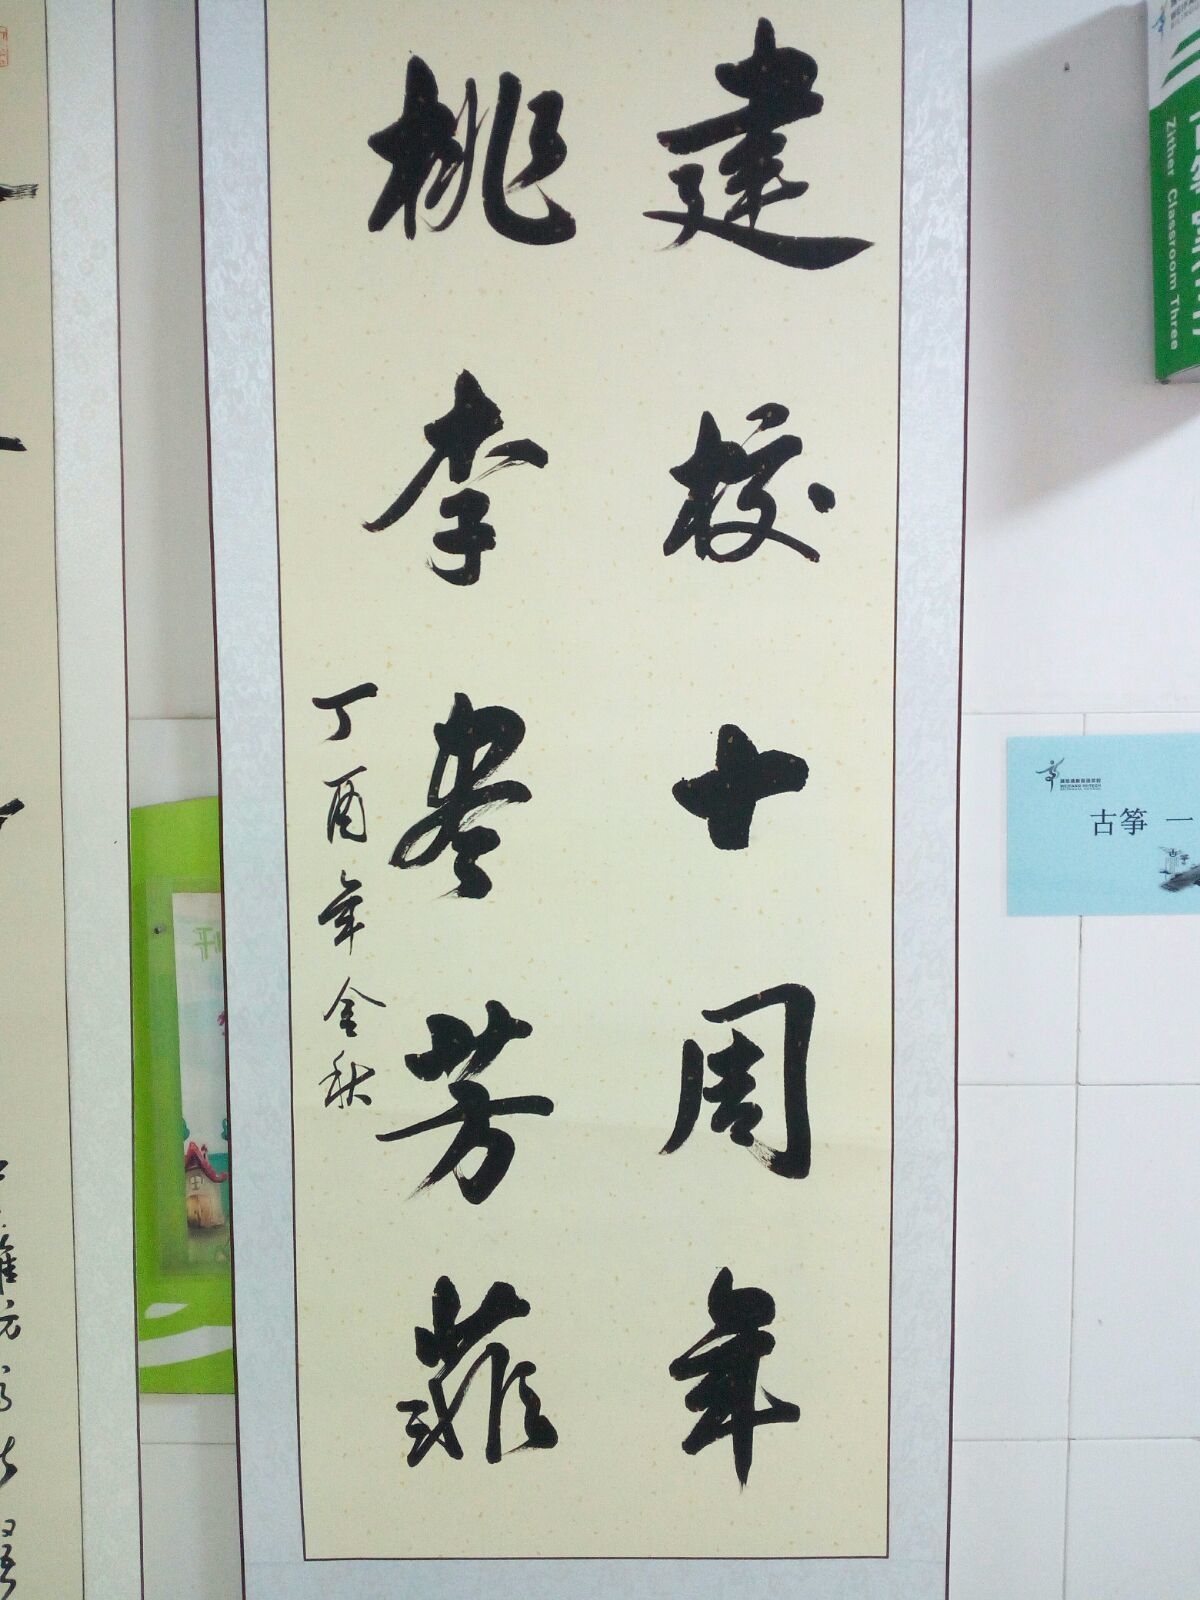 建校十周年
桃李尽芳菲
丁酉年金秋
Zither Classroom Three
古筝 一